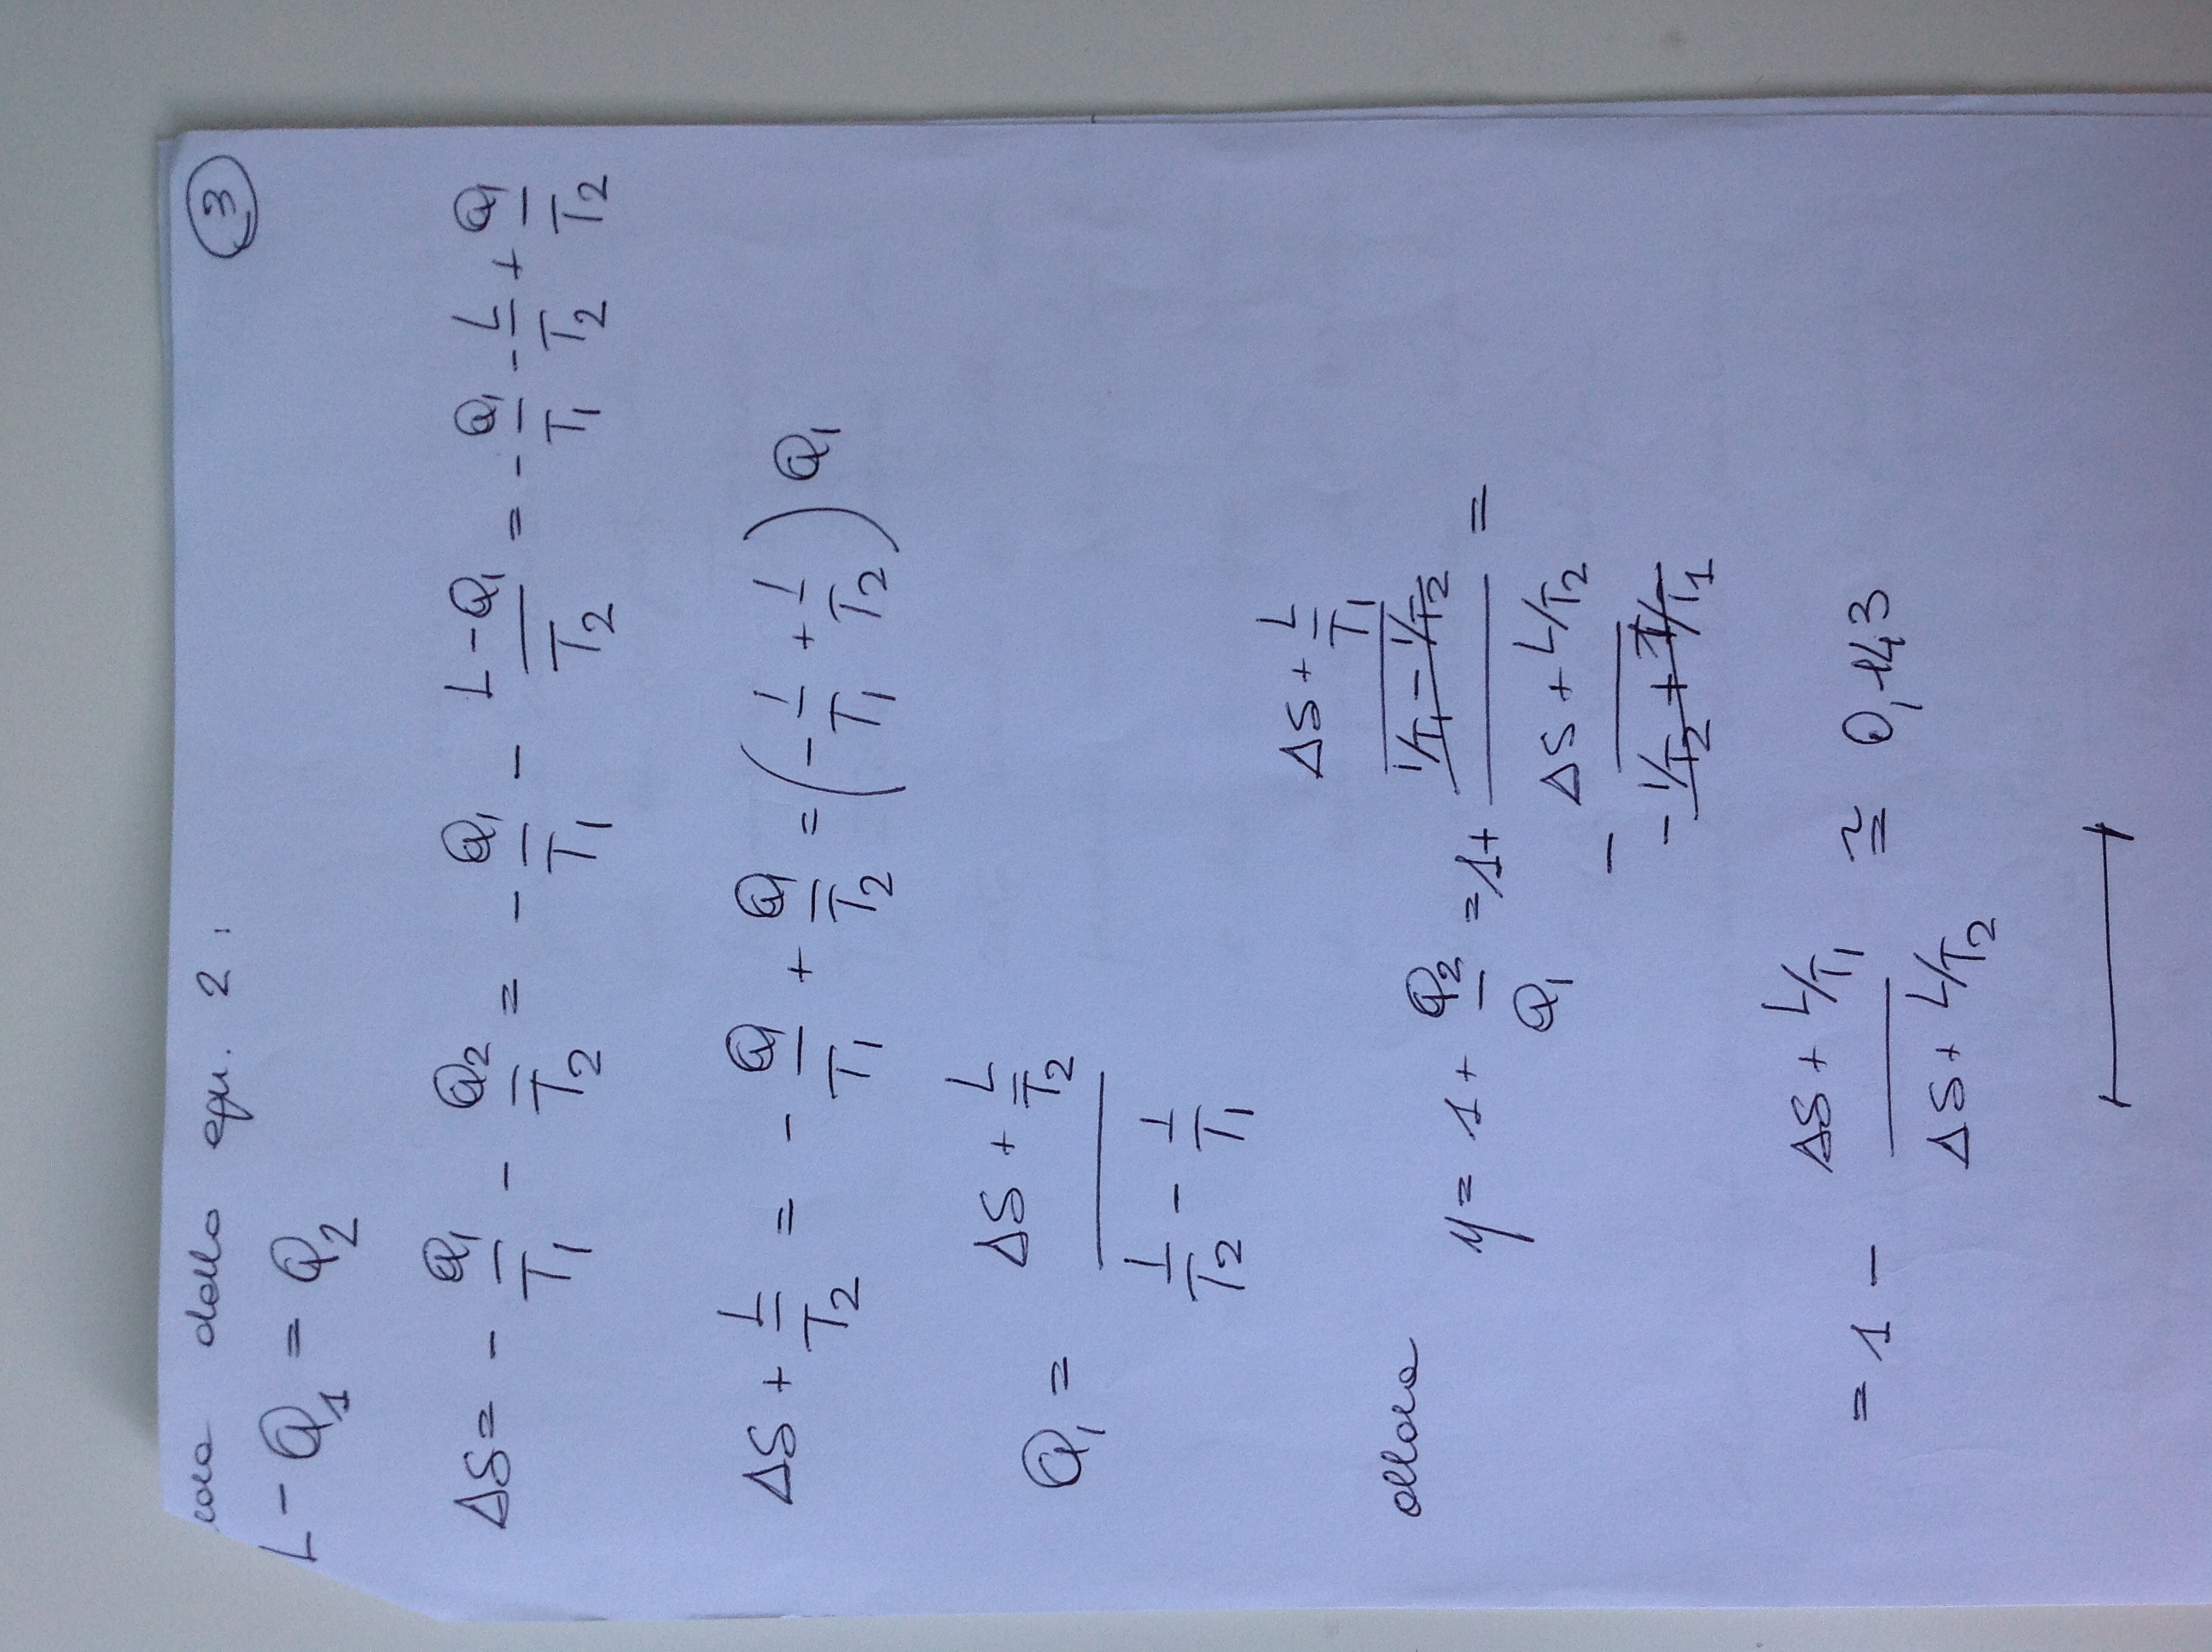 dalla equ. 2 :
3
L - Q₁ = Q₂
ΔS = - Q₁/T₁ - Q₂/T₂ = - Q₁/T₁ - (L - Q₁)/T₂ = - Q₁/T₁ - L/T₂ + Q₁/T₂
ΔS + L/T₂ = - Q₁/T₁ + Q₁/T₂ = (- 1/T₁ + 1/T₂) Q₁
Q₁ = (ΔS + L/T₂) / (1/T₂ - 1/T₁)
allora
η = 1 + Q₂/Q₁ = 1 + ((ΔS + L/T₁) / (1/T₁ - 1/T₂)) / (- (ΔS + L/T₂) / (- 1/T₂ + 1/T₁)) =
= 1 - (ΔS + L/T₁) / (ΔS + L/T₂) ≅ 0,143